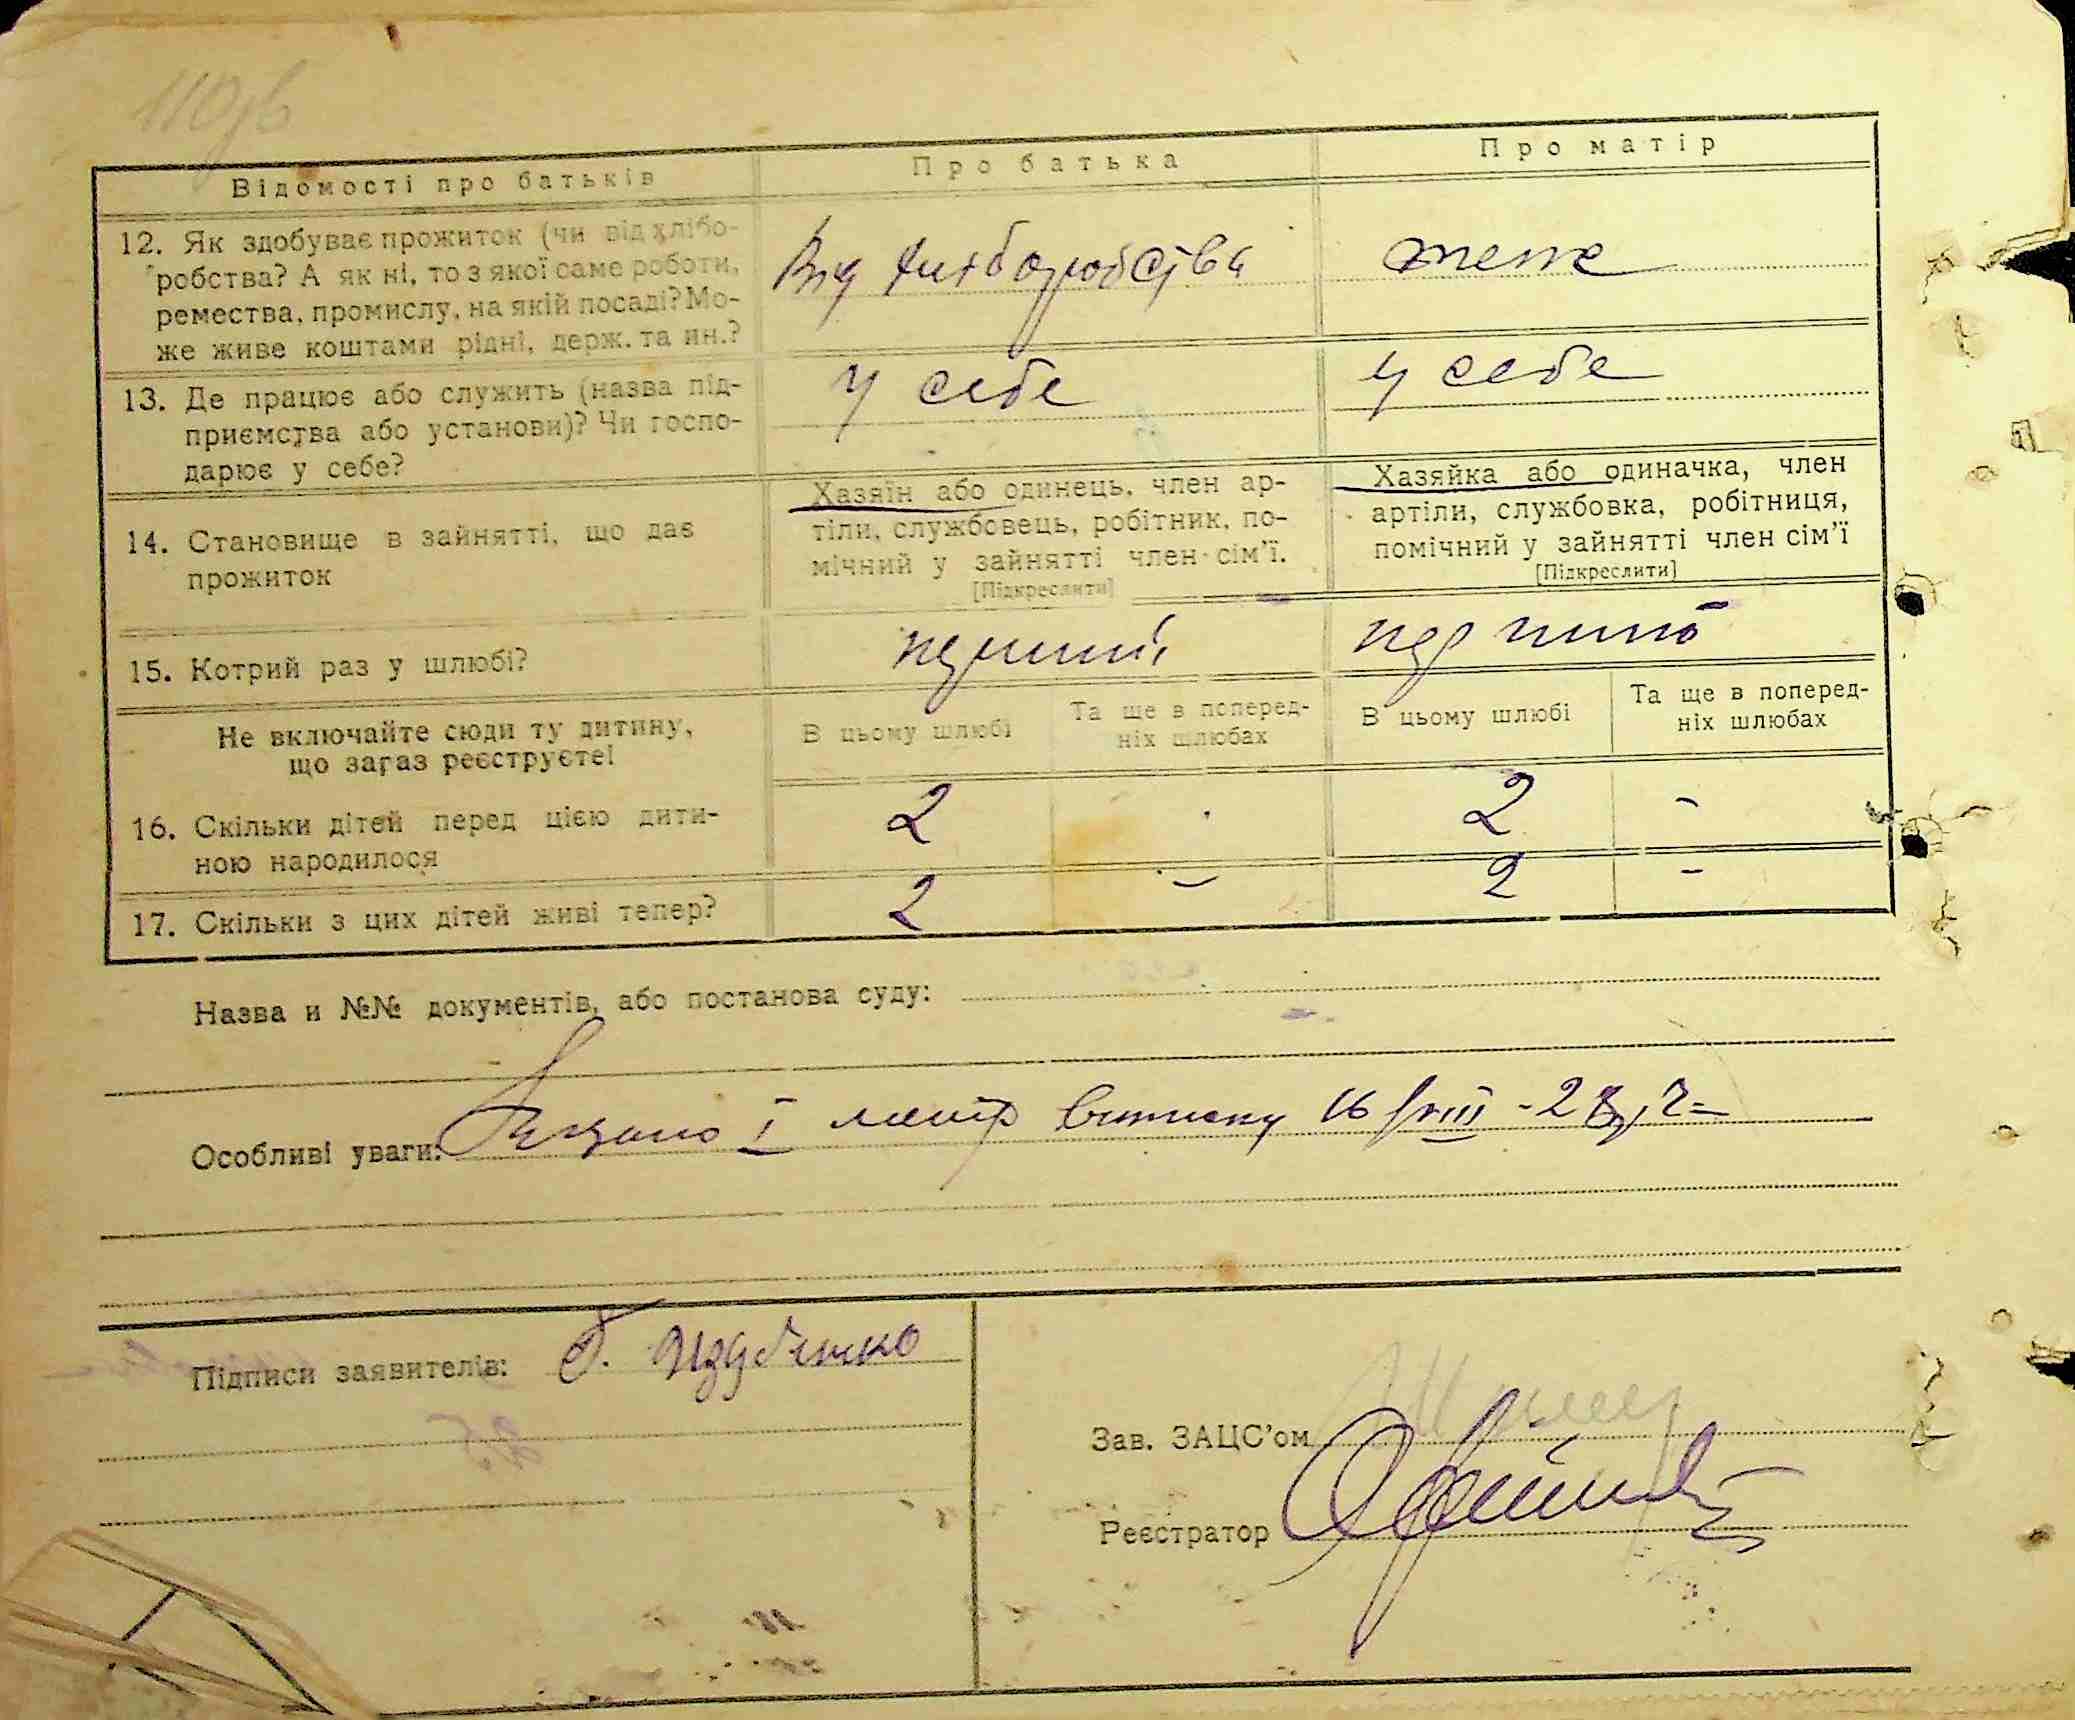 110зв
Відомості про батьків
Про батька
Про матір
12. Як здобуває прожиток (чи від хлібо-
робства? А як ні, то з якої саме роботи,
ремества, промислу, на якій посаді? Мо-
же живе коштами рідні, держ. та ин.?
Від хліборобства
теж
13. Де працює або служить (назва під-
приємства або установи)? Чи госпо-
дарює у себе?
У себе
У себе
14. Становище в зайнятті, що дає
прожиток
Хазяїн або одинець, член ар-
тіли, службовець, робітник, по-
мічний у зайнятті член сім'ї.
[Підкреслити]
Хазяйка або одиначка, член
артіли, службовка, робітниця,
помічний у зайнятті член сім'ї
[Підкреслити]
15. Котрий раз у шлюбі?
Не включайте сюди ту дитину,
що зараз реєструєте!
В цьому шлюбі
Та ще в поперед-
ніх шлюбах
В цьому шлюбі
Та ще в поперед-
ніх шлюбах
16. Скільки дітей перед цією дити-
ною народилося
2
2 -
17. Скільки з цих дітей живі тепер?
2 -
2 -
Назва и №№ документів, або постанова суду:
Особливі уваги: I витяг 16/VIII-28
Підписи заявителів:
Зав. ЗАЦС'ом
Реєстратор